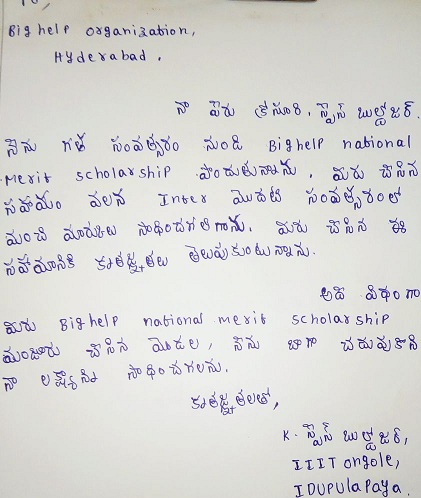 To,
Bighelp organization,
Hyderabad.
నా పేరు కేసూరి. స్పైస్ బుల్డోజర్.
నేను గత సంవత్సరం నుండి Bighelp national
Merit scholarship పొందుతున్నాను. మీరు చేసిన
సహాయం వలన Inter మొదటి సంవత్సరంలో
మంచి మార్కులు సాధించగలిగాను. మీరు చేసిన ఈ
సహాయానికి కృతజ్ఞతలు తెలుపుకుంటున్నాను.
అదే విధంగా
మీరు Bighelp national merit scholarship
మంజూరు చేసిన మొదల, నేను బాగా చదువుకొని
నా లక్ష్యాన్ని సాధించగలను.
కృతజ్ఞతలతో,
K. స్పైస్ బుల్డోజర్,
IIIT ongole,
IDUPULAPAYA.